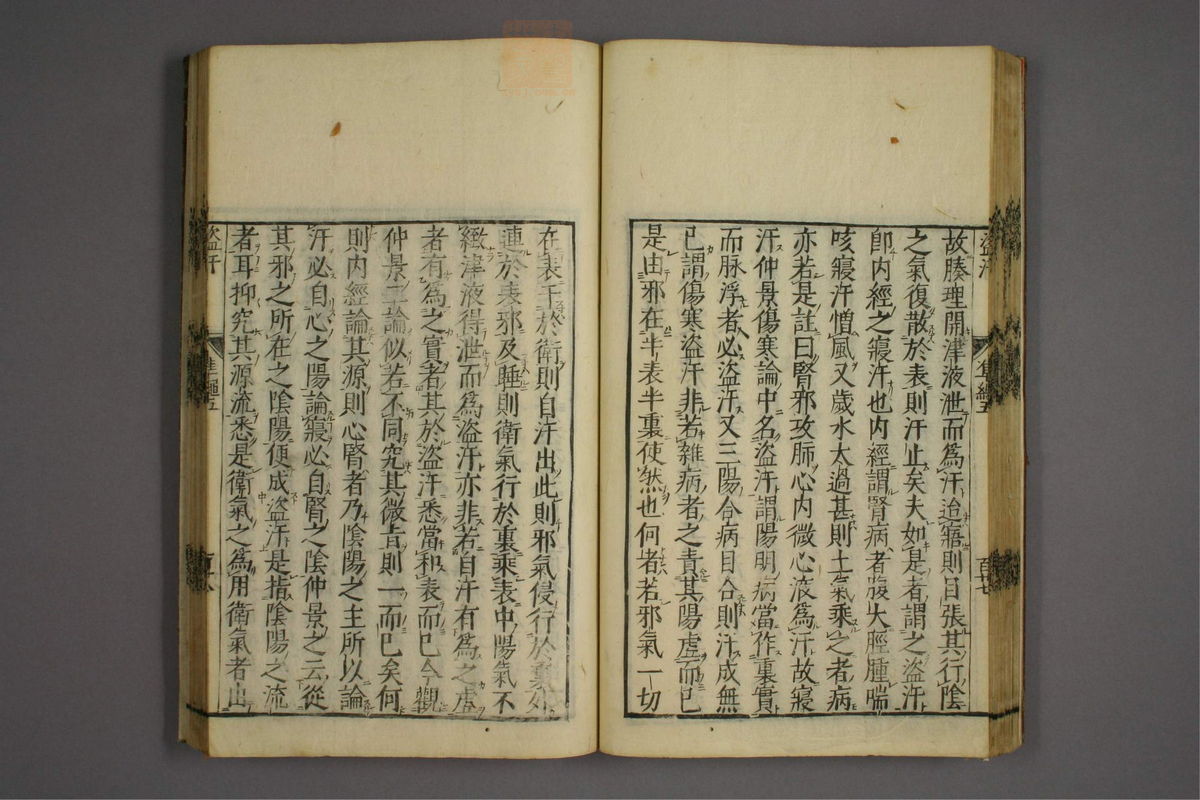 故腠理開津液泄而為汗迨寤則目張其行陰
之氣復散於表則汗止矣夫如是者謂之盜汗
卽內經之寢汗也內經謂腎病者腹大脛腫喘
咳寢汗憎風又歲水太過甚則土氣乘之者病
亦若是註曰腎邪攻肺心內微心液為汗故寢
汗仲景傷寒論中名盜汗謂陽明病當作裏實
而脉浮者必盜汗又三陽合病目合則汗成無
已謂傷寒盜汗非若雜病者之責其陽虛而已
是由邪在半表半裏使然也何者若邪氣一切
在表干於衛則自汗出此則邪氣侵行於裏外
連於表邪及睡則衛氣行於裏乘表中陽氣不
緻津液得泄而為盜汗亦非若自汗有為之虛
者有為之實者其於盜汗悉當和表而已今觀
仲景二論似若不同究其微旨則一而已矣何
則內經論其源則心腎者乃陰陽之主所以論
汗必自心之陽論寢必自腎之陰仲景之云從
其邪之所在之陰陽便成盜汗是指陰陽之流
者耳抑究其源流悉是衛氣之為用衛氣者出
盜汗